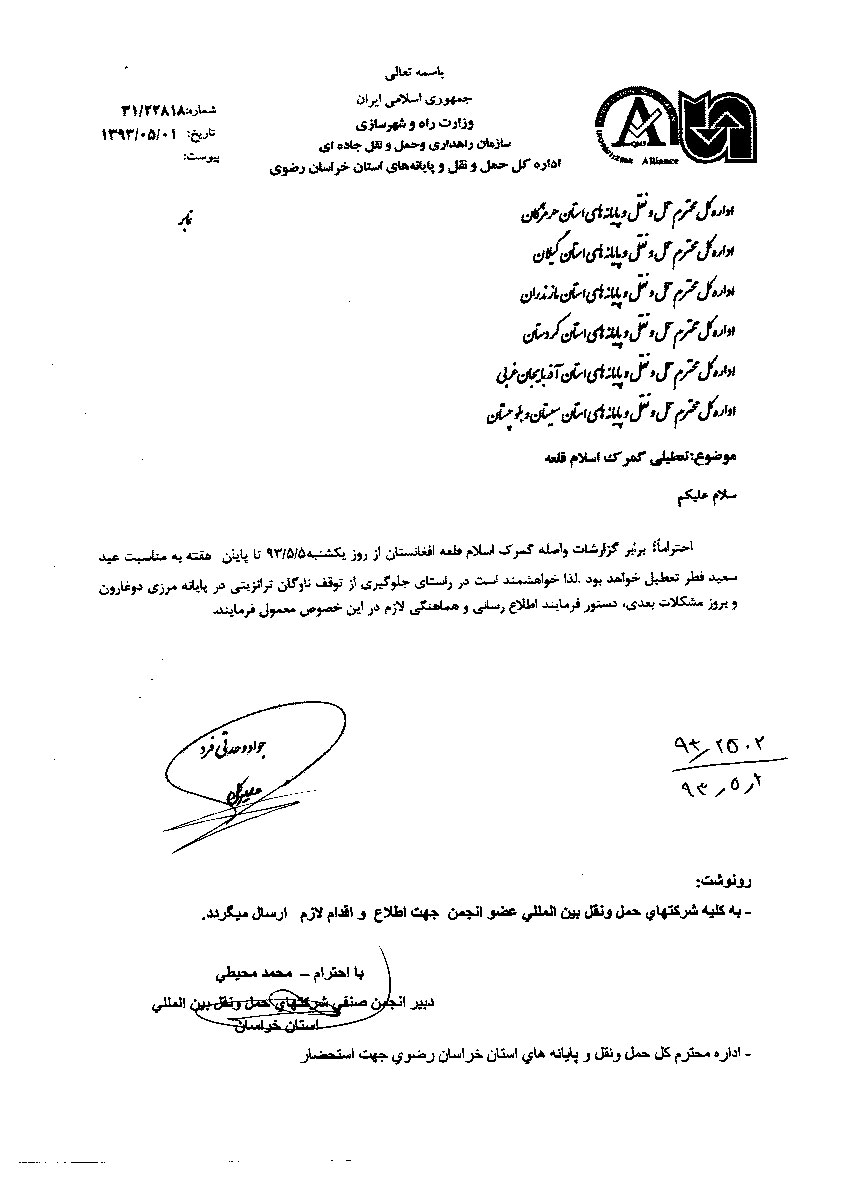 باسمه تعالی
جمهوری اسلامی ایران
وزارت راه و شهرسازی
سازمان راهداری وحمل و نقل جاده ای
اداره کل حمل و نقل و پایانه‌های استان خراسان رضوی
شماره: ۳۱/۲۲۸۱۸
تاریخ: ۱۳۹۳/۰۵/۰۱
پیوست:
Alliance
اداره کل محترم حمل و نقل و پایانه های استان هرمزگان
اداره کل محترم حمل و نقل و پایانه های استان گیلان
اداره کل محترم حمل و نقل و پایانه های استان مازندران
اداره کل محترم حمل و نقل و پایانه های استان کردستان
اداره کل محترم حمل و نقل و پایانه های استان آذربایجان غربی
اداره کل محترم حمل و نقل و پایانه های استان سیستان و بلوچستان
موضوع: تعطیلی گمرک اسلام قلعه
سلام علیکم
احتراماً؛ برابر گزارشات واصله گمرک اسلام قلعه افغانستان از روز یکشنبه ۹۳/۵/۵ تا پایان هفته به مناسبت عید
سعید فطر تعطیل خواهد بود .لذا خواهشمند است در راستای جلوگیری از توقف ناوگان ترانزیتی در پایانه مرزی دوغارون
و بروز مشکلات بعدی، دستور فرمایند اطلاع رسانی و هماهنگی لازم در این خصوص معمول فرمایند.
جواد وحدتی فرد
مدیرکل
۹۳/۲۵۰۲
۹۳/۵/۲
رونوشت:
- به کلیه شرکتهاي حمل ونقل بین المللي عضو انجمن جهت اطلاع و اقدام لازم ارسال میگردد.
با احترام – محمد محیطي
دبیر انجمن صنفي شرکتهاي حمل ونقل بین المللي
استان خراسان
- اداره محترم کل حمل ونقل و پایانه هاي استان خراسان رضوي جهت استحضار